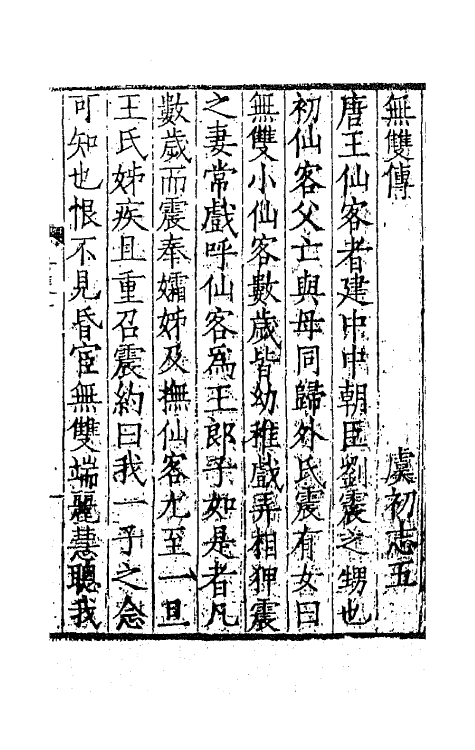 無雙傳
虞初志五
唐王仙客者建中中朝臣劉震之甥也
初仙客父亡與母同歸外氏震有女曰
無雙小仙客數歲皆幼稚戲弄相狎震
之妻常戲呼仙客為王郎子如是者凡
數歲而震奉孀姊及撫仙客尤至一旦
王氏姊疾且重召震約曰我一子之念
可知也恨不見昏宦無雙端麗慧聰我